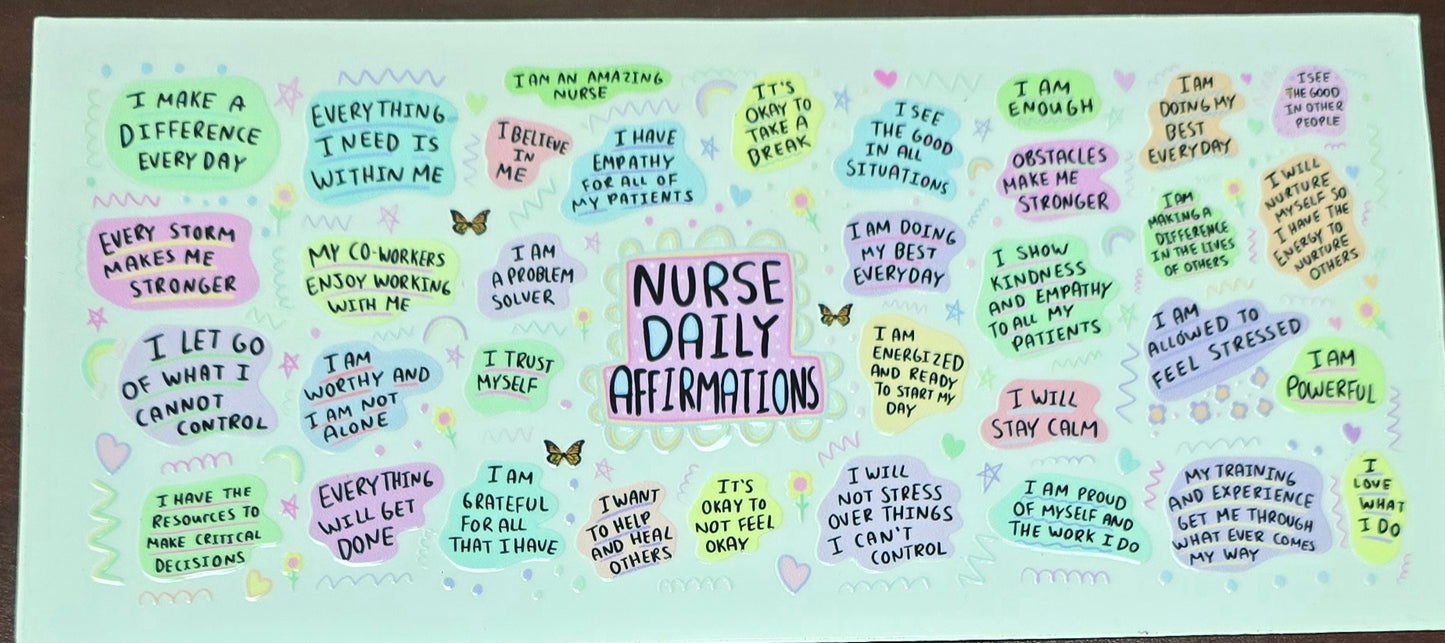 I MAKE A
DIFFERENCE
EVERY DAY
EVERYTHING
I NEED IS
WITHIN ME
I AM AN AMAZING
NURSE
I BELIEVE
IN
ME
I HAVE
EMPATHY
FOR ALL OF
MY PATIENTS
IT'S
OKAY TO
TAKE A
BREAK
I SEE
THE GOOD
IN ALL
SITUATIONS
I AM
ENOUGH
I AM
DOING MY
BEST
EVERYDAY
I SEE
THE GOOD
IN OTHER
PEOPLE
OBSTACLES
MAKE ME
STRONGER
I WILL
NURTURE
MYSELF SO
I HAVE THE
ENERGY TO
NURTURE
OTHERS
EVERY STORM
MAKES ME
STRONGER
MY CO-WORKERS
ENJOY WORKING
WITH ME
I AM
A PROBLEM
SOLVER
NURSE
DAILY
AFFIRMATIONS
I AM DOING
MY BEST
EVERYDAY
I SHOW
KINDNESS
AND EMPATHY
TO ALL MY
PATIENTS
I AM
MAKING A
DIFFERENCE
IN THE LIVES
OF OTHERS
I LET GO
OF WHAT I
CANNOT
CONTROL
I AM
WORTHY AND
I AM NOT
ALONE
I TRUST
MYSELF
I AM
ENERGIZED
AND READY
TO START MY
DAY
I WILL
STAY CALM
I AM
ALLOWED TO
FEEL STRESSED
I AM
POWERFUL
I HAVE THE
RESOURCES TO
MAKE CRITICAL
DECISIONS
EVERYTHING
WILL GET
DONE
I AM
GRATEFUL
FOR ALL
THAT I HAVE
I WANT
TO HELP
AND HEAL
OTHERS
IT'S
OKAY TO
NOT FEEL
OKAY
I WILL
NOT STRESS
OVER THINGS
I CAN'T
CONTROL
I AM PROUD
OF MYSELF AND
THE WORK I DO
MY TRAINING
AND EXPERIENCE
GET ME THROUGH
WHAT EVER COMES
MY WAY
I
LOVE
WHAT
I DO